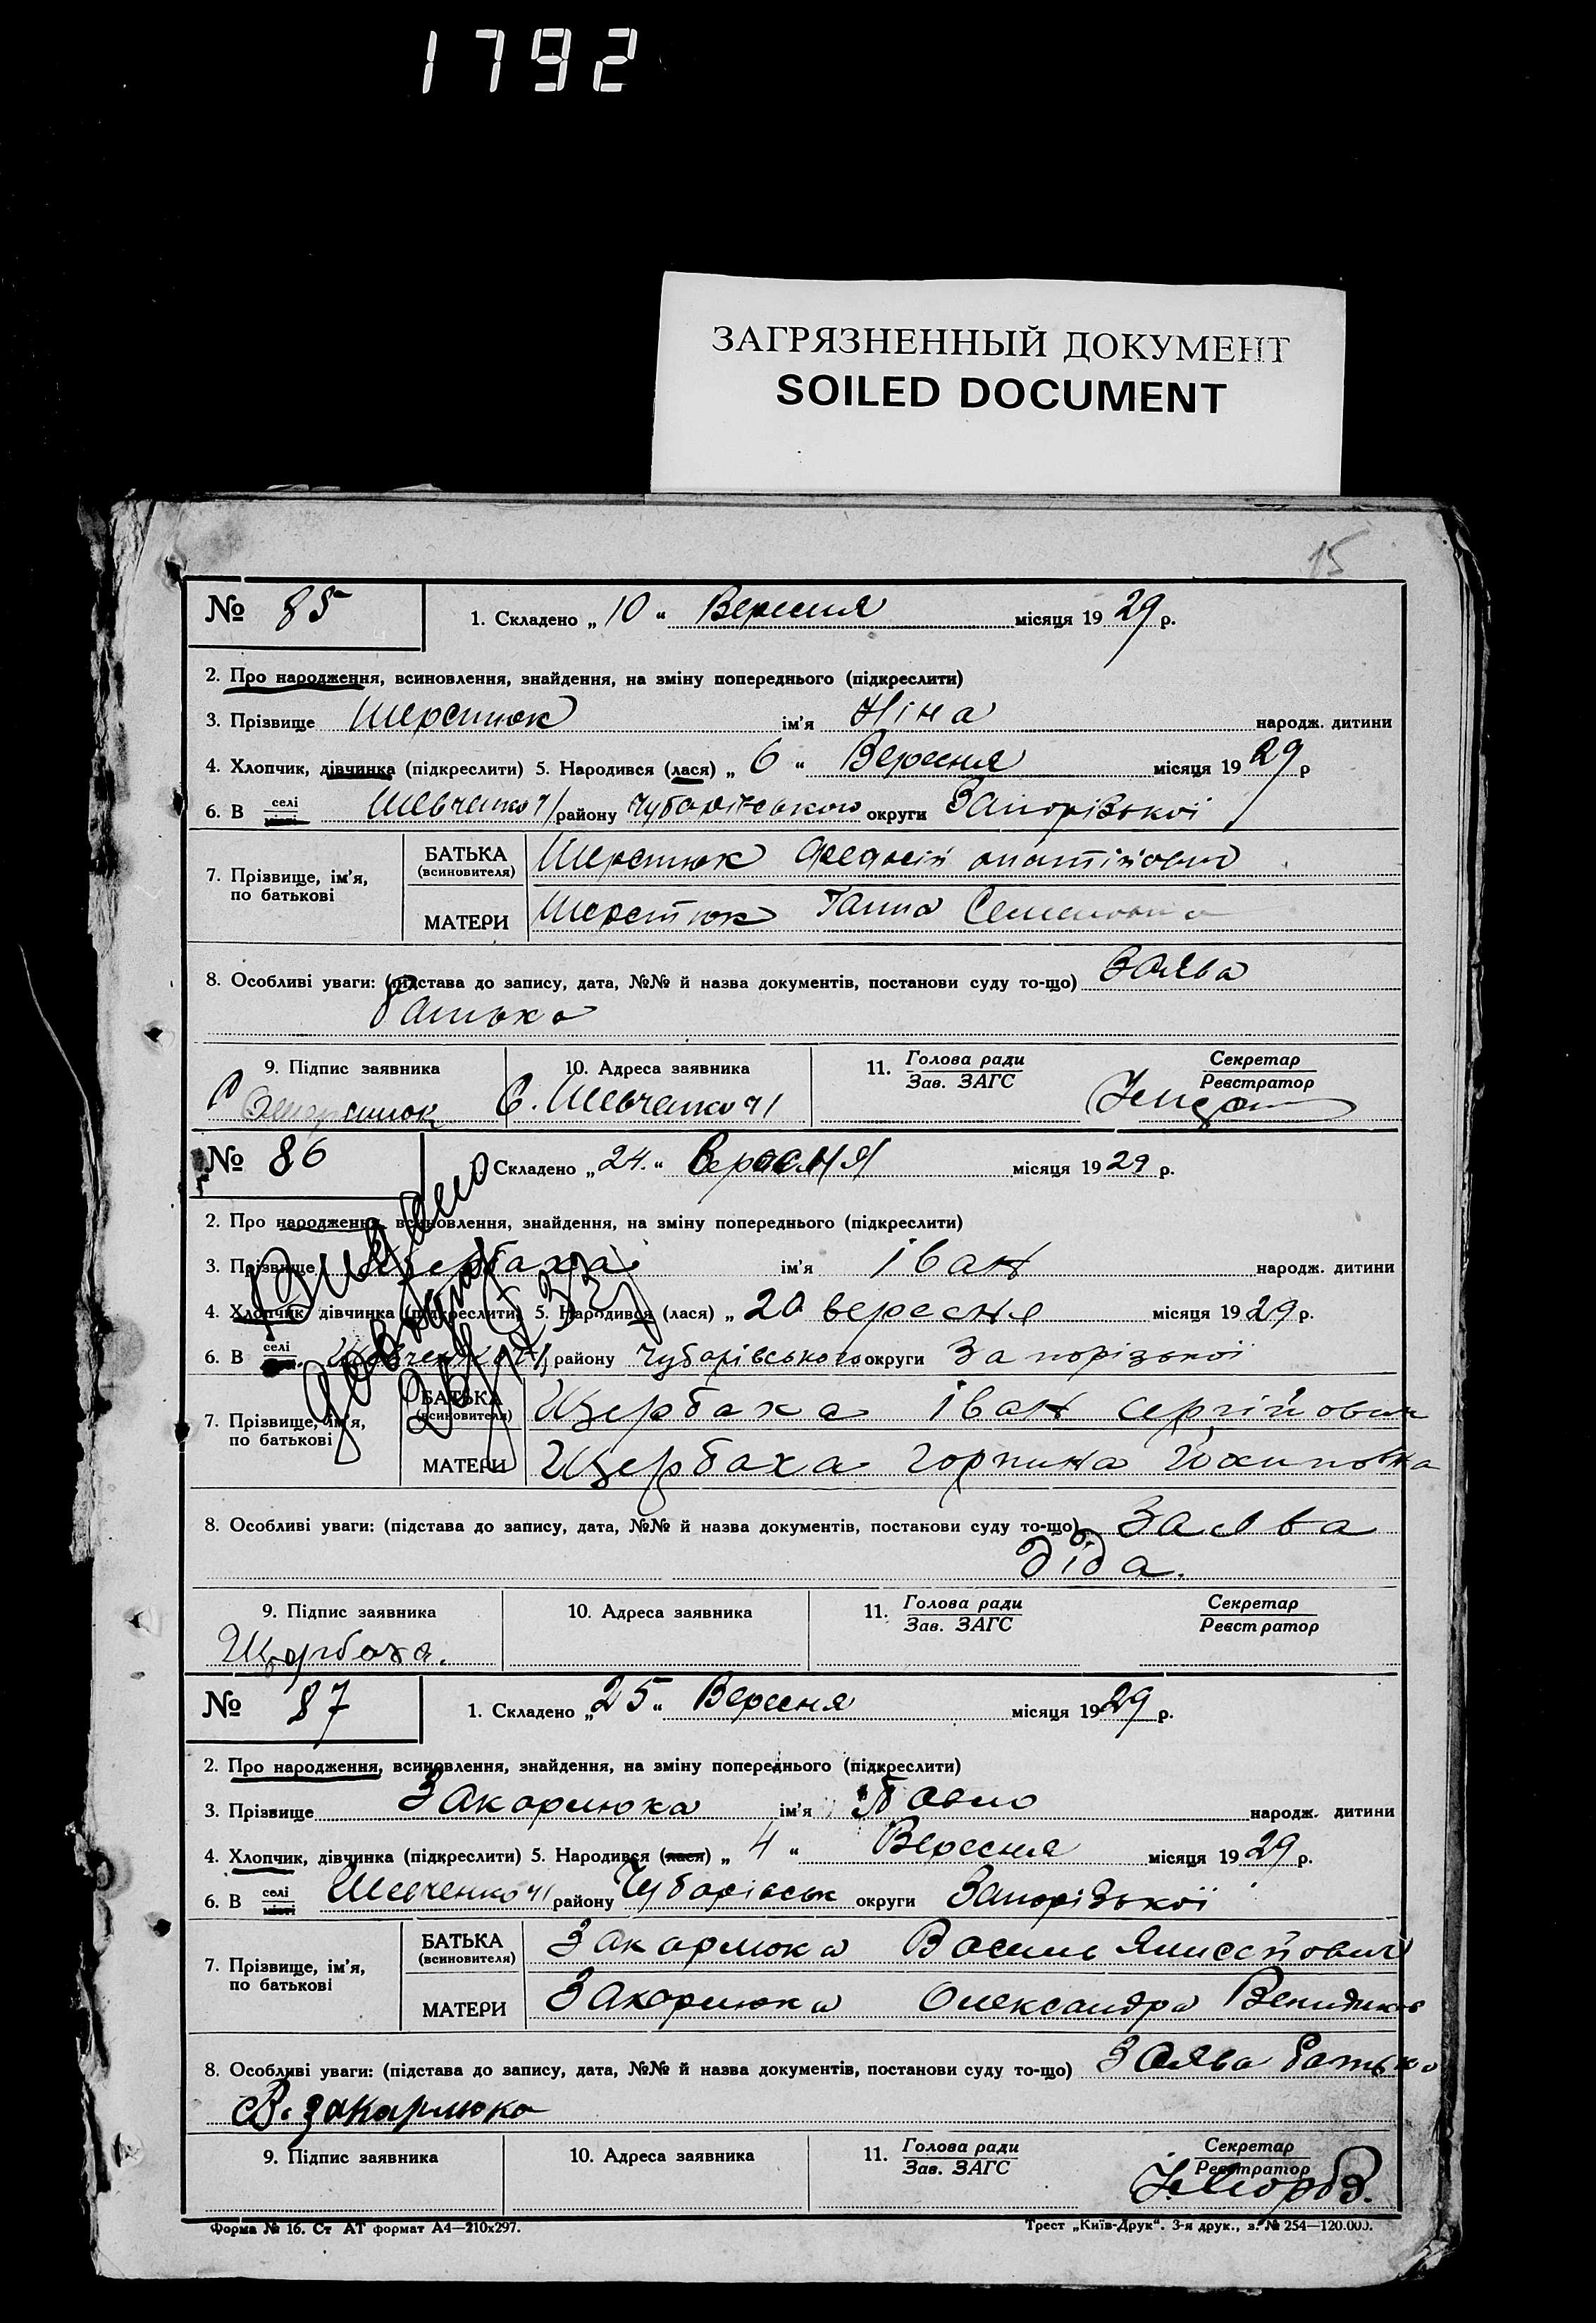 1792
ЗАГРЯЗНЕННЫЙ ДОКУМЕНТ
SOILED DOCUMENT
15
№ 85 1. Складено „10“ Вересня місяця 1929 р.
2. Про народження, всиновлення, знайдення, на зміну попереднього (підкреслити)
3. Прізвище Шерстюк ім'я Ніна народж. дитини
4. Хлопчик, дівчинка (підкреслити) 5. Народився (лася) „6“ Вересня місяця 1929 р
6. В селі Шевченко 41 району Чубарівського округи Запорізької
7. Прізвище, ім'я, по батькові
БАТЬКА (всиновителя) Шерстюк
МАТЕРИ Шерстюк Ганна Семеновна
8. Особливі уваги: (підстава до запису, дата, №№ й назва документів, постанови суду то-що) Заява
батька
9. Підпис заявника 10. Адреса заявника 11. Голова ради Секретар
Зав. ЗАГС Реєстратор
С. Шевченко 41
№ 86 Складено „24.“ Вересня місяця 1929 р.
2. Про народження, всиновлення, знайдення, на зміну попереднього (підкреслити)
3. Прізвище Щербаха ім'я іван народж. дитини
4. Хлопчик, дівчинка (підкреслити) 5. Народився (лася) „20 вересня місяця 1929 р.
6. В селі Шевченко 41, району Чубарівського округи Запорізької
7. Прізвище, ім'я, по батькові
БАТЬКА (всиновителя) Щербаха іван сергійович
МАТЕРИ Щербаха горпина
8. Особливі уваги: (підстава до запису, дата, №№ й назва документів, постанови суду то-що) Заява
діда.
9. Підпис заявника 10. Адреса заявника 11. Голова ради Секретар
Зав. ЗАГС Реєстратор
Щербаха.
Видано
№ 87 1. Складено „25“ Вересня місяця 1929 р.
2. Про народження, всиновлення, знайдення, на зміну попереднього (підкреслити)
3. Прізвище Закарлюка ім'я Павло народж. дитини
4. Хлопчик, дівчинка (підкреслити) 5. Народився (лася) „4“ Вересня місяця 1929 р.
6. В селі місті Шевченко 41 району Чубарівськ округи Запорізької
7. Прізвище, ім'я, по батькові
БАТЬКА (всиновителя) Закарлюка Василь
МАТЕРИ Закарлюка Олександра
8. Особливі уваги: (підстава до запису, дата, №№ й назва документів, постанови суду то-що) Заява батька
В. Закарлюка
9. Підпис заявника 10. Адреса заявника 11. Голова ради Секретар
Зав. ЗАГС Реєстратор
Форма № 16. Ст АТ формат А4—210х297. Трест „Київ-Друк“. 3-я друк., з. № 254—120.000.